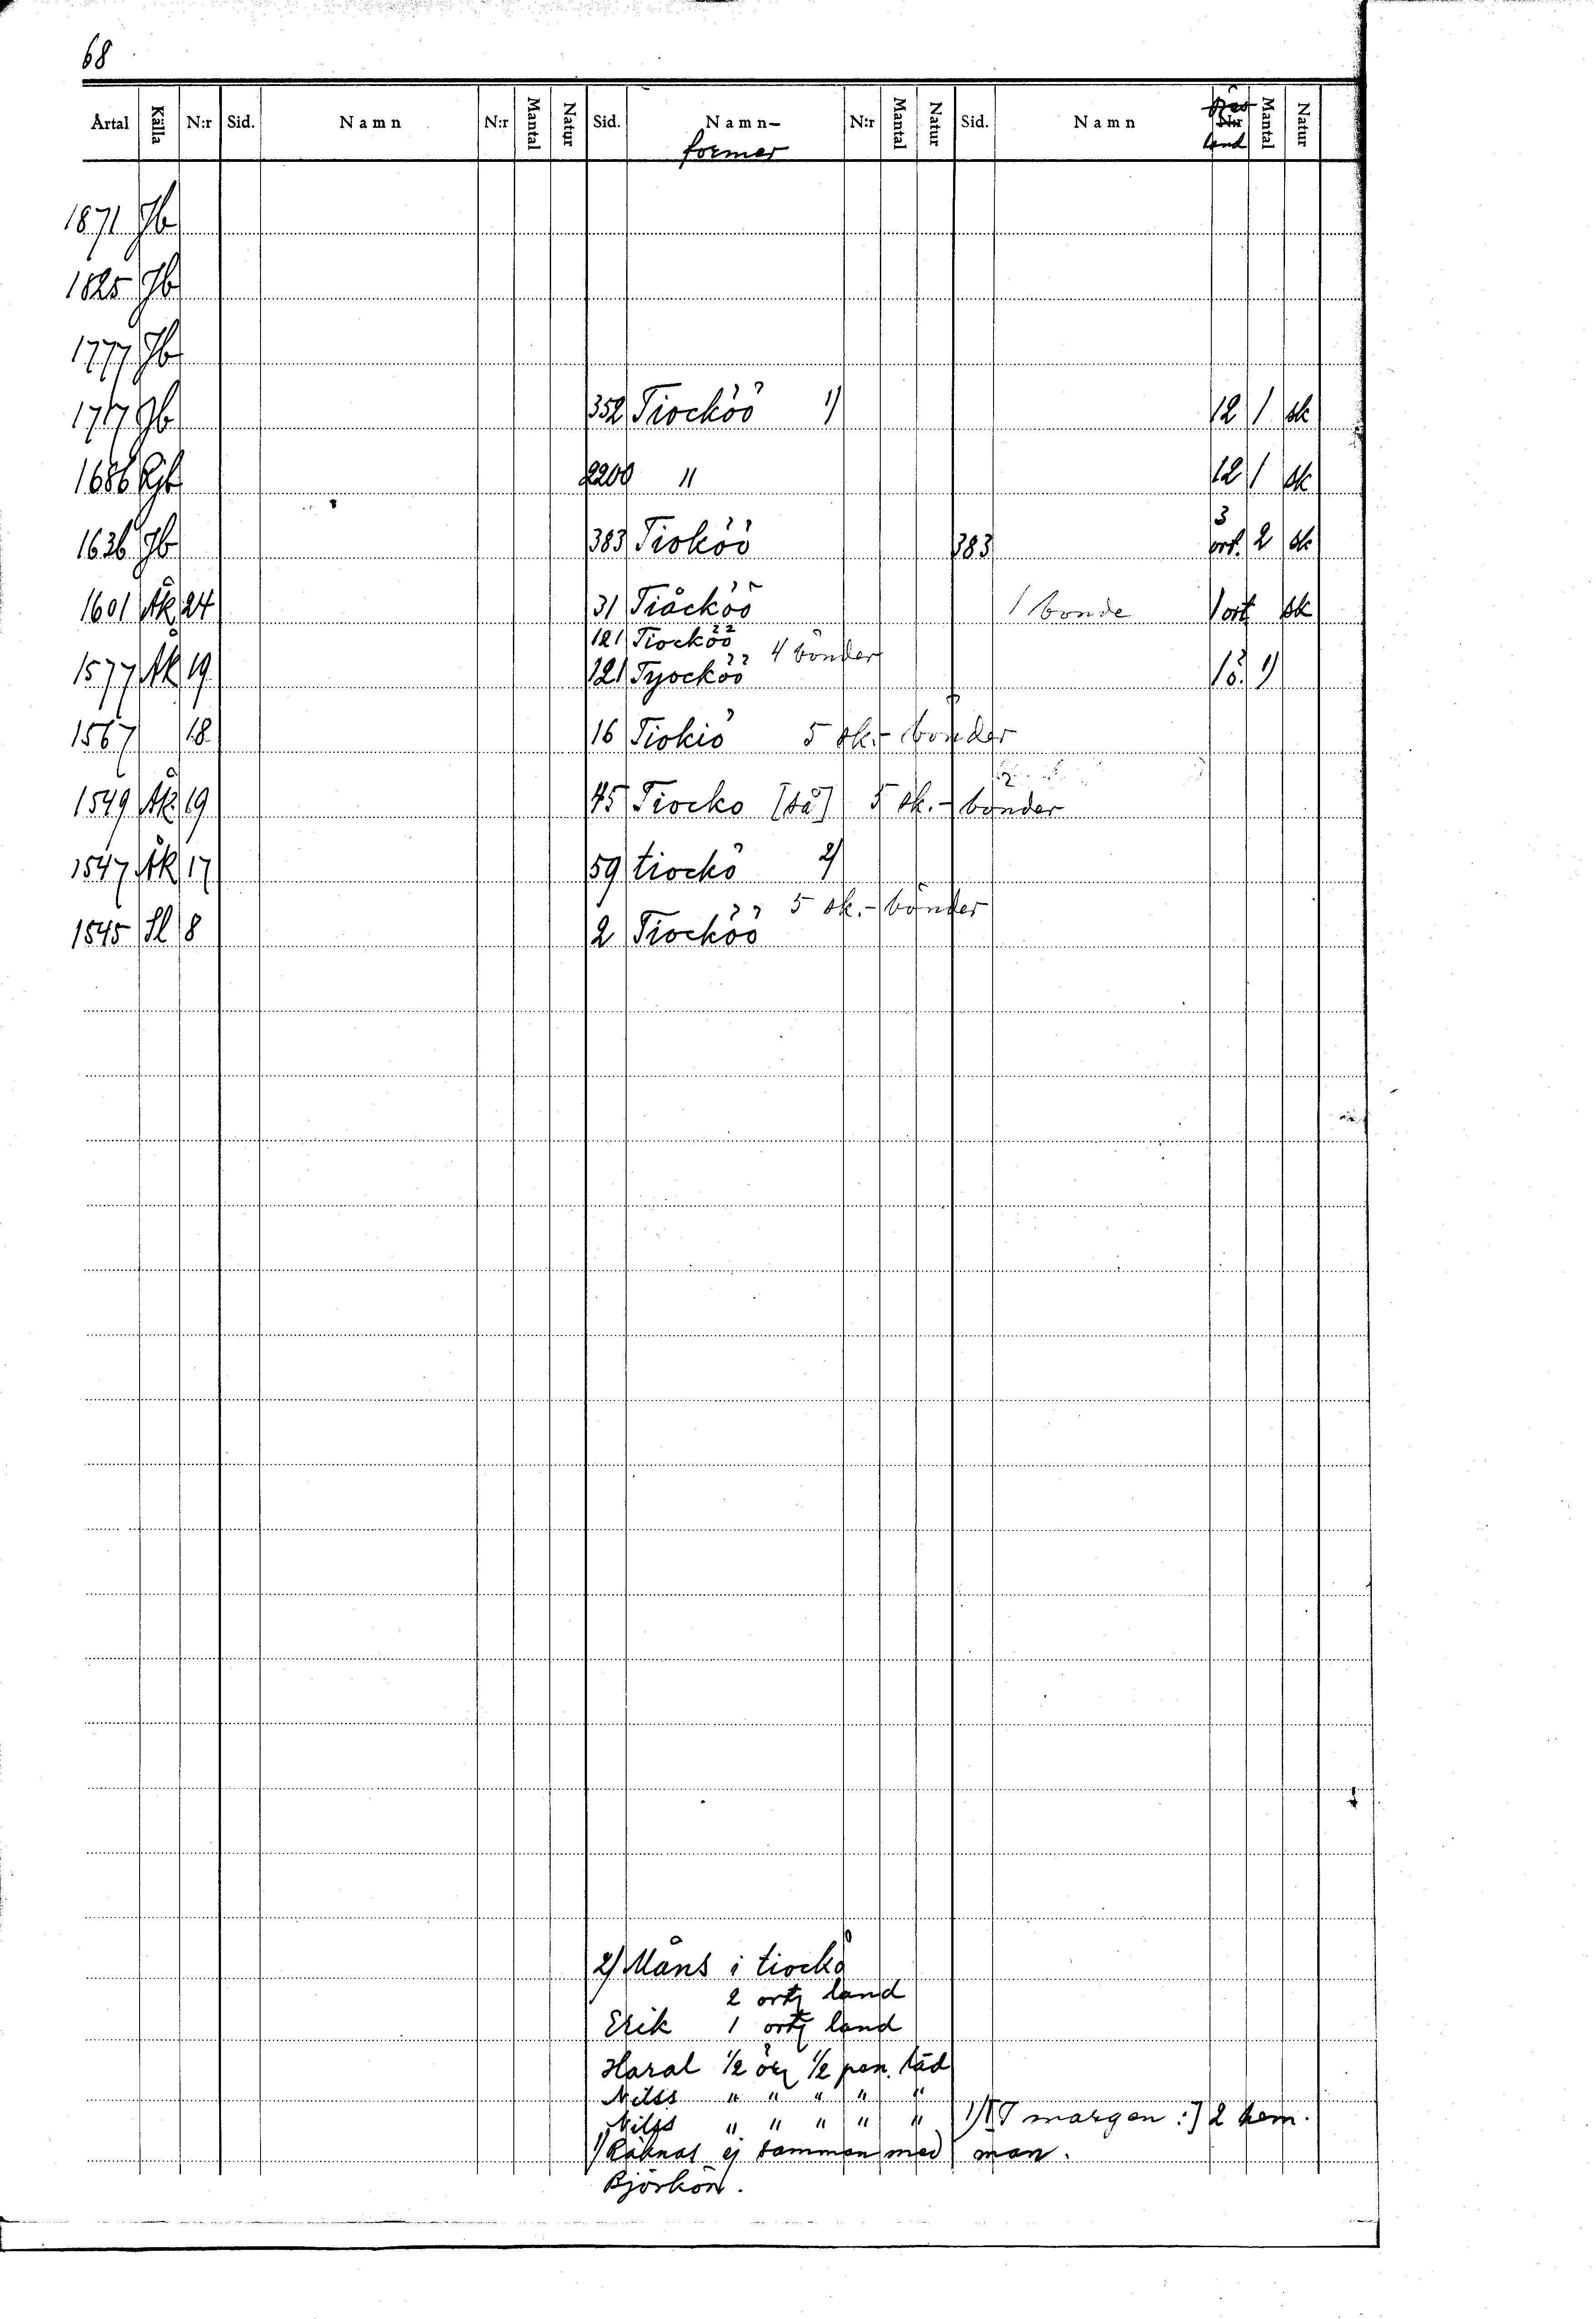 68
Årtal Källa N:r Sid. Namn N:r Mantal Natur Sid. Namn- N:r Mantal Natur Sid. Namn N:r Mantal Natur
former land
1871 Jb
1825 Jb
1777 Jb
1717 Jb 352 Tiocköö 1) 12 1 sk
1686 Rjb 2200 " 12 1 sk
3
1636 Jb 383 Tioköö 383 ört. 2 sk
1601 Åk 24 31 Tiåcköö 1 bonde 1 ört sk
121 Tiocköö
4 bönder
1577 Åk 19 121 Tyocköö 1 ö. 1)
1567 18 16 Tiokiö 5 sk.-bönder
1549 Åk 19 45 Tiocko [så] 5 sk.-bönder
1547 Åk 17 59 tiockö 2)
5 sk.-bönder
1545 Sl 8 2 Tiocköö
2) Måns i tiockö
2 ortg land
Erik 1 ortg land
Haral ½ örg ½ pen. läd
Nilss " " " " "
Nilss " " " " " 1) [I margen:] 2 hem.
1) Räknas ej samman med man.
Björkön.